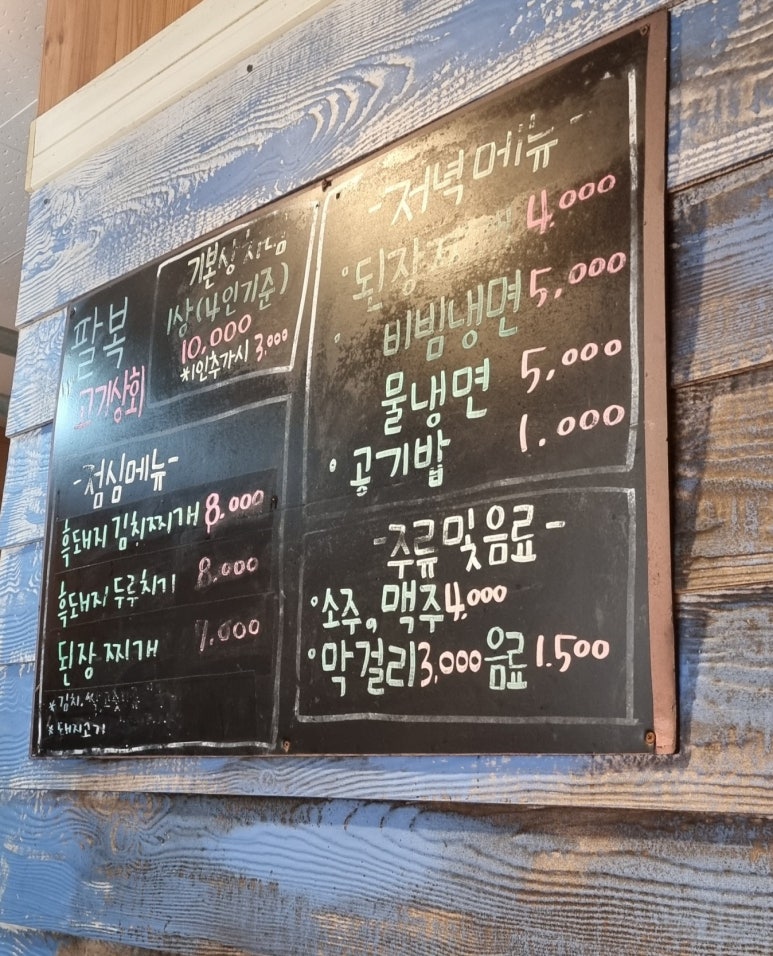 팔복
고기상회
기본상차림
1상(4인기준)
10,000
*1인추가시 3,000
-점심메뉴-
흑돼지 김치찌개 8.000
흑돼지 두루치기 8.000
된장찌개 7.000
*김치,
*돼지고기
-저녁메뉴-
된장 4.000
비빔냉면 5,000
물냉면 5,000
공기밥 1.000
-주류및음료-
소주, 맥주 4.000
막걸리 3,000 음료 1.500